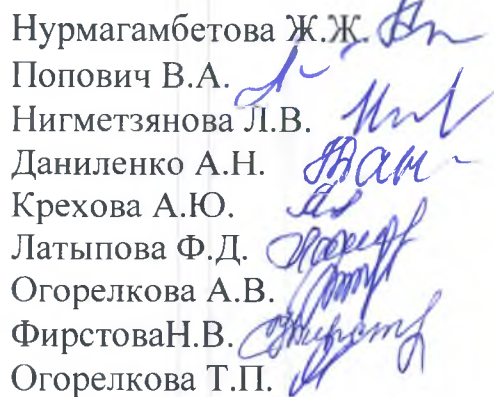 Нурмагамбетова Ж.Ж.
Попович В.А.
Нигметзянова Л.В.
Даниленко А.Н.
Крехова А.Ю.
Латыпова Ф.Д.
Огорелкова А.В.
ФирстоваН.В.
Огорелкова Т.П.